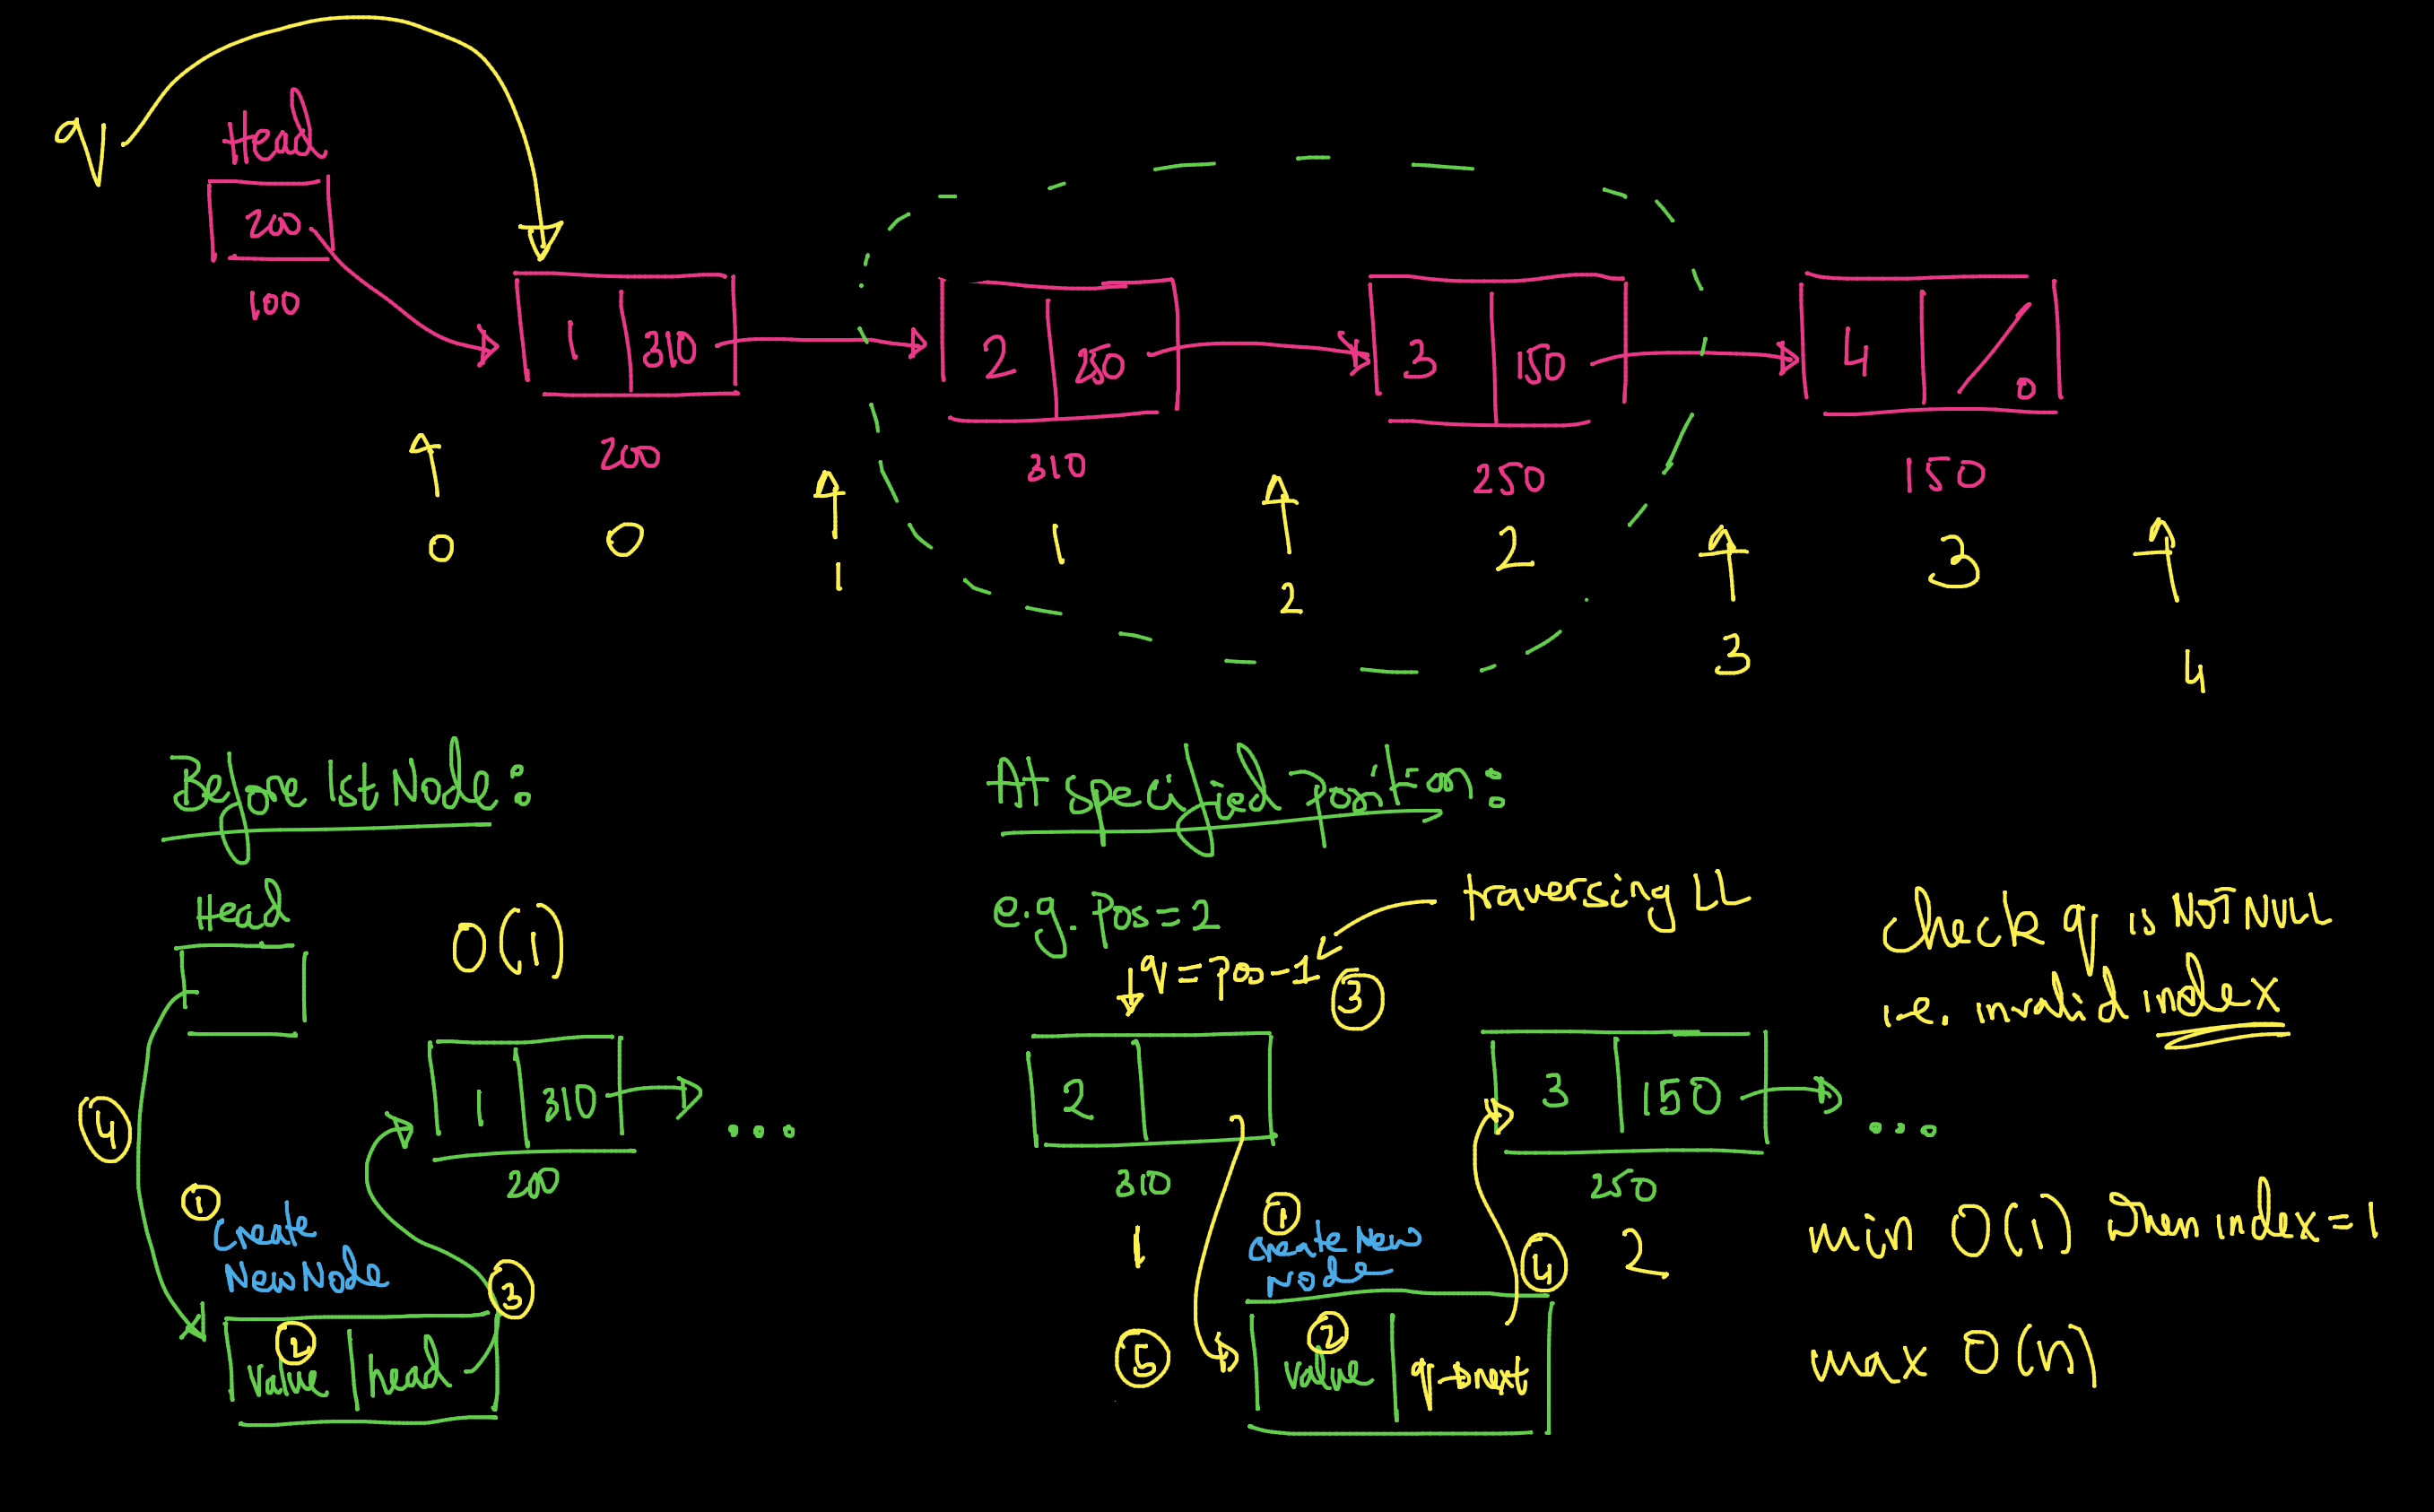 q
Head
200
100
1 310
2 250
3 150
4 0
200
310
250
150
0 0 1 1 2 2 3 3 4
Before 1st Node:
Head
O(1)
1 310
...
200
4
1
Create
New Node
3
2
value head
At specified position:
e.g. Pos=2
traversing LL
q = pos-1
3
2
3 150
...
310
250
1
2
1
Create New
Node
4
5
2
value q→next
Check q is NOT NULL
i.e. invalid index
min O(1) when index=1
max O(n)